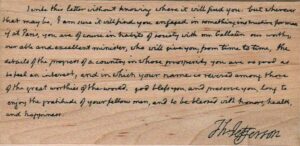 I write this letter without knowing where it will find you. but wherever
that may be, I am sure it will find you engaged in something instructive for man. if
at Paris, you are of course in habits of society with mr. Gallatin our worthy,
our able and excellent minister, who will give you, from time to time, the
details of the progress of a country in whose prosperity you are so good as
to feel an interest, and in which your name is revered among those
of the great worthies of the world. god bless you, and preserve you long to
enjoy the gratitude of your fellow men, and to be blessed with honors, health,
and happiness.
Th Jefferson